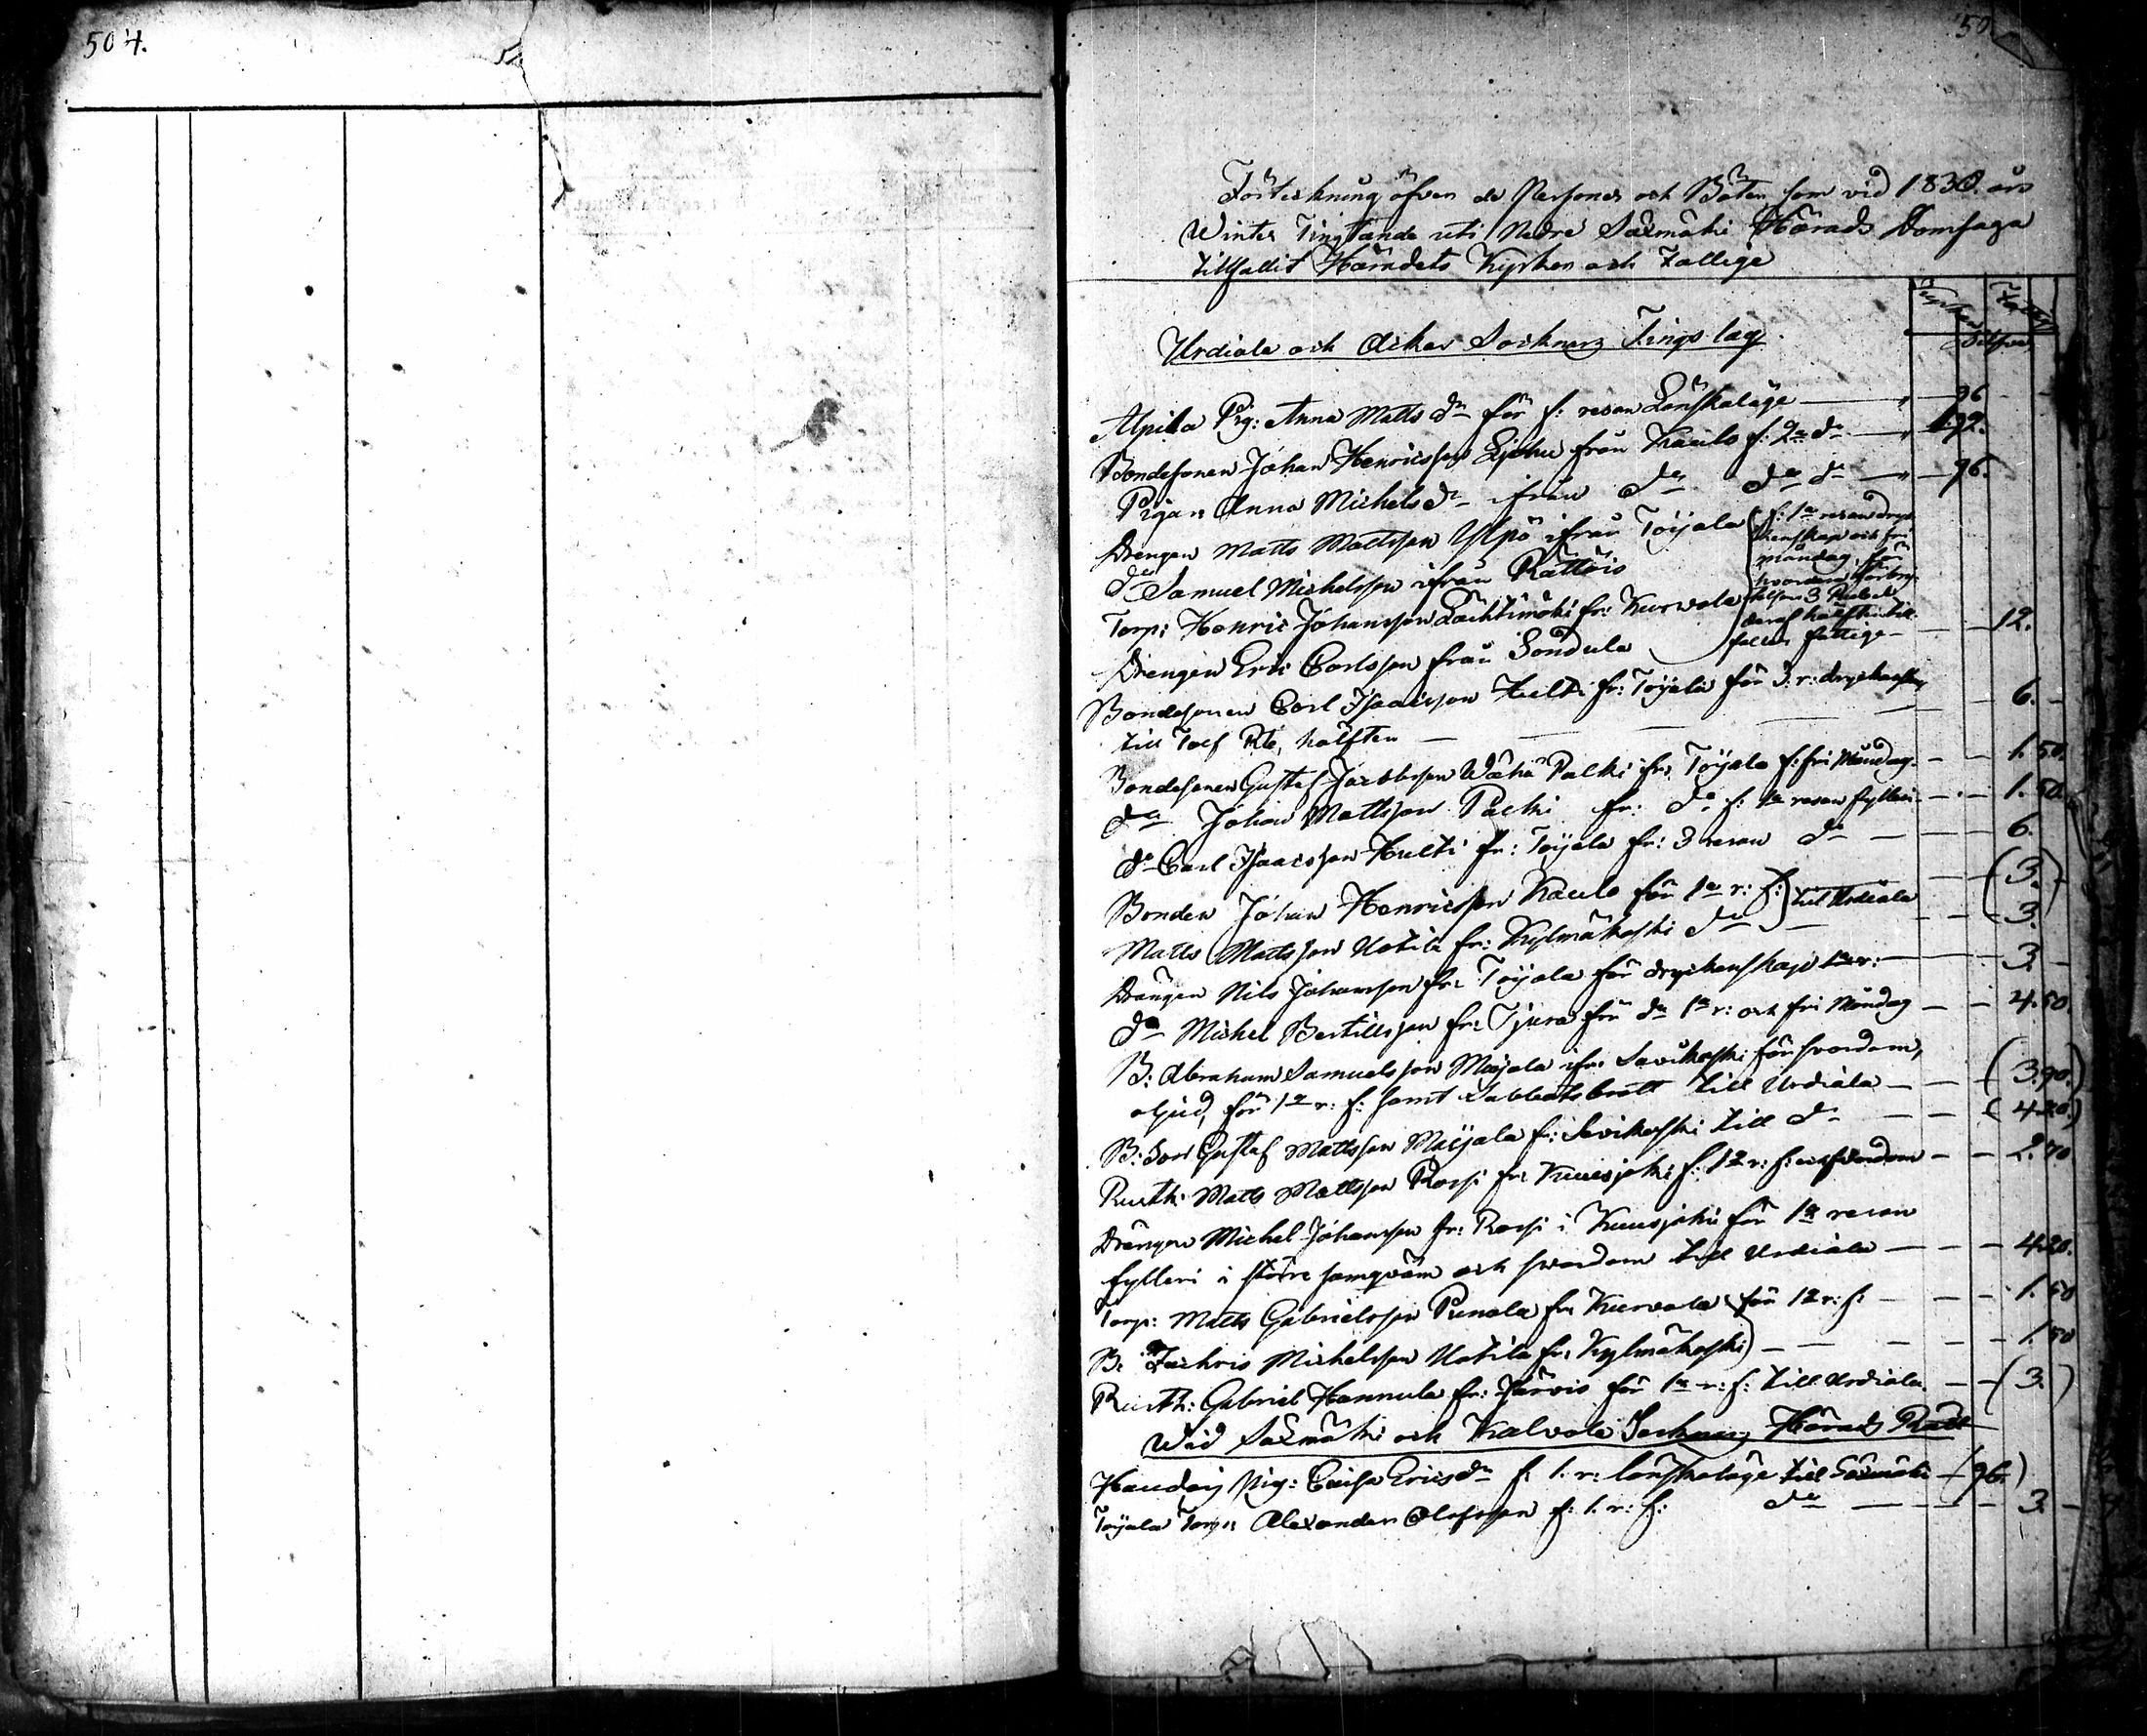 504.
50
Förtekning öfver de Personer och Böter, som vid 1830. års
Winter Ting tande uti Nedre Säxmäki Härads Domsaga
tillfallit Häradets Kyrkor och Fattige
Kyrkan Fattig
Silfver
Urdiala och Ackas Socknars Tings lag.
Alpila Pig: Anna Matts dr för f: resan Lönskaläge — 96
Bondesonen Johan Henricsson Eljohu från Kaulo f: 2a do — 1.92.
Pigan Anna Michelsdr ifrån do do do — 96.
Drengen Matts Mattsson Ylpö ifrån Toijala f: 1a resan dryc
kenskap och fri
måndag, för
do Samuel Michelsson ifrån Rättöis
Torp: Henric Johansson Lachtimäki fr: Kurvola
deraf hälften till
faller fattige — 12.
Drengen Eric Carlsson från Sondula
Bondesonen Carl Isaacsson Hulti fr: Toijala för 3. r: dryckenskap
till Tolf Rb, hälften — 6. —
Bondesonen Gustaf Jacobsson Wähä Palki fr: Toijala f: fri Måndag. — 1.50.
do Johan Mattsson Palki fr: do f: 1a resan fylleri — 1.50.
do Carl Isaacsson Hulti fr: Toijala fr: 3 resan do — 6.
Bonden Johan Henricsson Kaulo för 1a r: f: till Urdiala — (3.)
Matts Mattsson Uotila fr: Kylmäkoski do — 3.
Drängen Nils Johansson fr: Toijala för dryckenskap 1a r: — 3. —
do Michel Bertillsson fr: Tjura för do 1a r: och fri Måndag — 4.50.
B: Abraham Samuelsson Maijala ifr: Savikoski för svordom,
oljud, för 1a r: f: samt Sabbatsbrott till Urdiala — (3.90.)
B: Son Gustaf Mattsson Maijala fr: Savikoski till do — (4.20.)
Rusth: Matts Mattsson Rossi fr: Kuusjoki f: 1a r: f: och svordom — 2.70
Drängen Michel Johansson fr: Rossi i Kuusjoki för 1a resan
fylleri i större samqväm och svordom till Urdiala — 4.20.
Torp: Matts Gabrielsson Punola fr: Kurvola för 1a r: f: — 1.50
B: Zachris Michelsson Uotila fr: Kylmäkoski — 1.50
Rusth: Gabriel Hannula fr: Järvis för 1a r: f: till Urdiala. — (3.)
Wid Säxmäki och Kalvola Socknars Härads Rätt
Haudoij Pig: Caisa Ericsdr f. 1. r: lönskaläge till Säxmäki — (96.)
Toijala Torp: Alexander Olofsson f: 1. r: f: do — 3. —